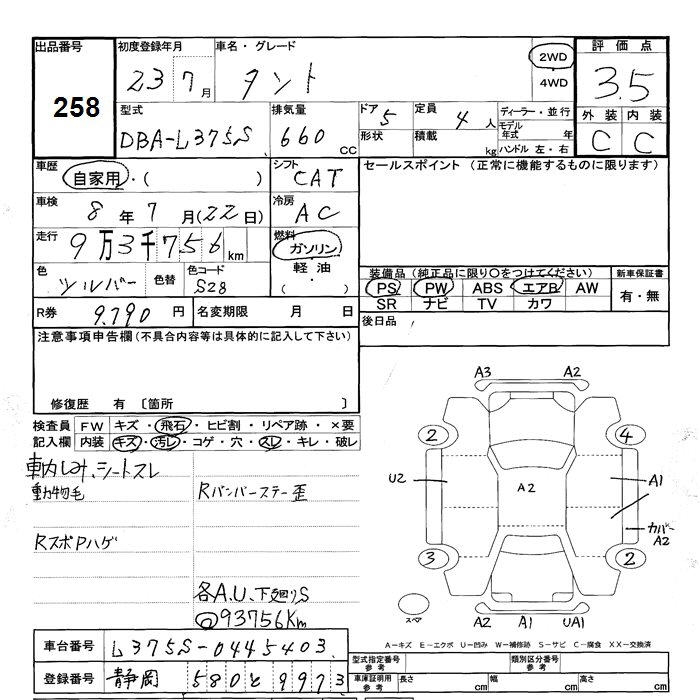 出品番号 初度登録年月 車名・グレード 2WD 評価点
258 23 7月 タント 4WD 3.5
型式 排気量 ドア 5 定員 4人 ディーラー・並行 外装 内装
DBA-L375S 660 CC 形状 積載 kg モデル年式 年 C C
ハンドル 左・右
車歴 自家用・( ) シフト CAT セールスポイント (正常に機能するものに限ります)
車検 8年 7月(22日) 冷房 AC
走行 9万3千756km 燃料 ガソリン
軽油
・( )
色 シルバー 色替 色コード S28
装備品 (純正品に限り〇をつけてください) 新車保証書
PS PW ABS エアB AW 有・無
SR ナビ TV カワ
R券 9,790円 名変期限 月 日 後日品
注意事項申告欄(不具合内容等は具体的に記入して下さい)
修復歴 有 〔箇所 〕
検査員 FW キズ・飛石・ヒビ割・リペア跡・×要
記入欄 内装 キズ・汚レ・コゲ・穴・スレ・キレ・破レ
車内しみ、シートスレ
動物毛 Rバンパーステー歪
RスポPハゲ
各A.U.下廻りS
93756Km
A3 A2
2 4
U2 A2 A1
カバー
A2
3 2
スペア A2 A1 UA1
A-キズ E-エクボ U-凹み W-補修跡 S-サビ C-腐食 XX-交換済
車台番号 L375S-0445403
登録番号 静岡 580と9973
型式指定番号 参考 類別区分番号 参考
車庫証明用 参考 長さ cm 幅 cm 高さ cm